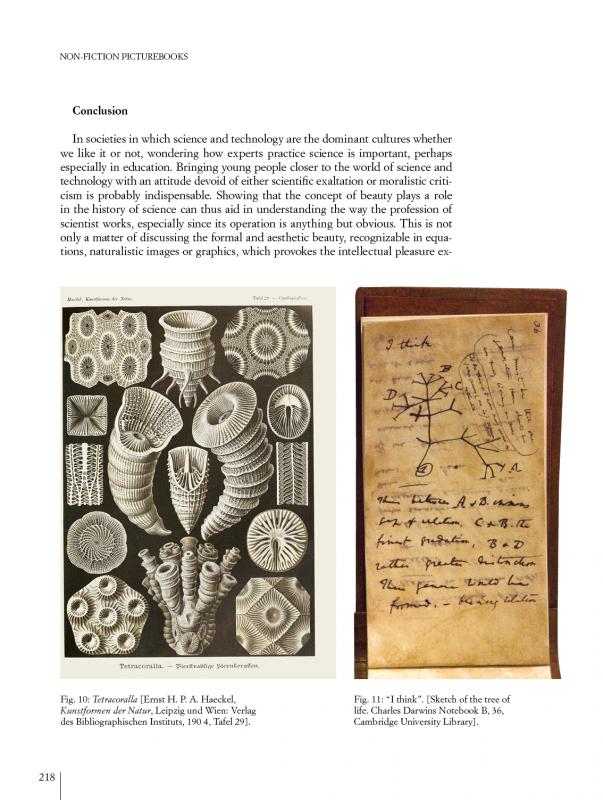 NON-FICTION PICTUREBOOKS
Conclusion
In societies in which science and technology are the dominant cultures whether
we like it or not, wondering how experts practice science is important, perhaps
especially in education. Bringing young people closer to the world of science and
technology with an attitude devoid of either scientific exaltation or moralistic criti-
cism is probably indispensable. Showing that the concept of beauty plays a role
in the history of science can thus aid in understanding the way the profession of
scientist works, especially since its operation is anything but obvious. This is not
only a matter of discussing the formal and aesthetic beauty, recognizable in equa-
tions, naturalistic images or graphics, which provokes the intellectual pleasure ex-
Haeckel, Kunstformen der Natur.
Tafel 29 —
Tetracoralla. — Vierstrahlige Sternkorallen.
36
I think
B
C
D
A
1
Thus between A & B. immense
gap of relation. C & B. the
finest gradation, B & D
rather greater distinction
Thus genera would be
formed. — bearing relation
Fig. 10: Tetracoralla [Ernst H. P. A. Haeckel,
Kunstformen der Natur, Leipzig und Wien: Verlag
des Bibliographischen Instituts, 190 4, Tafel 29].
Fig. 11: “I think”. [Sketch of the tree of
life. Charles Darwins Notebook B, 36,
Cambridge University Library].
218